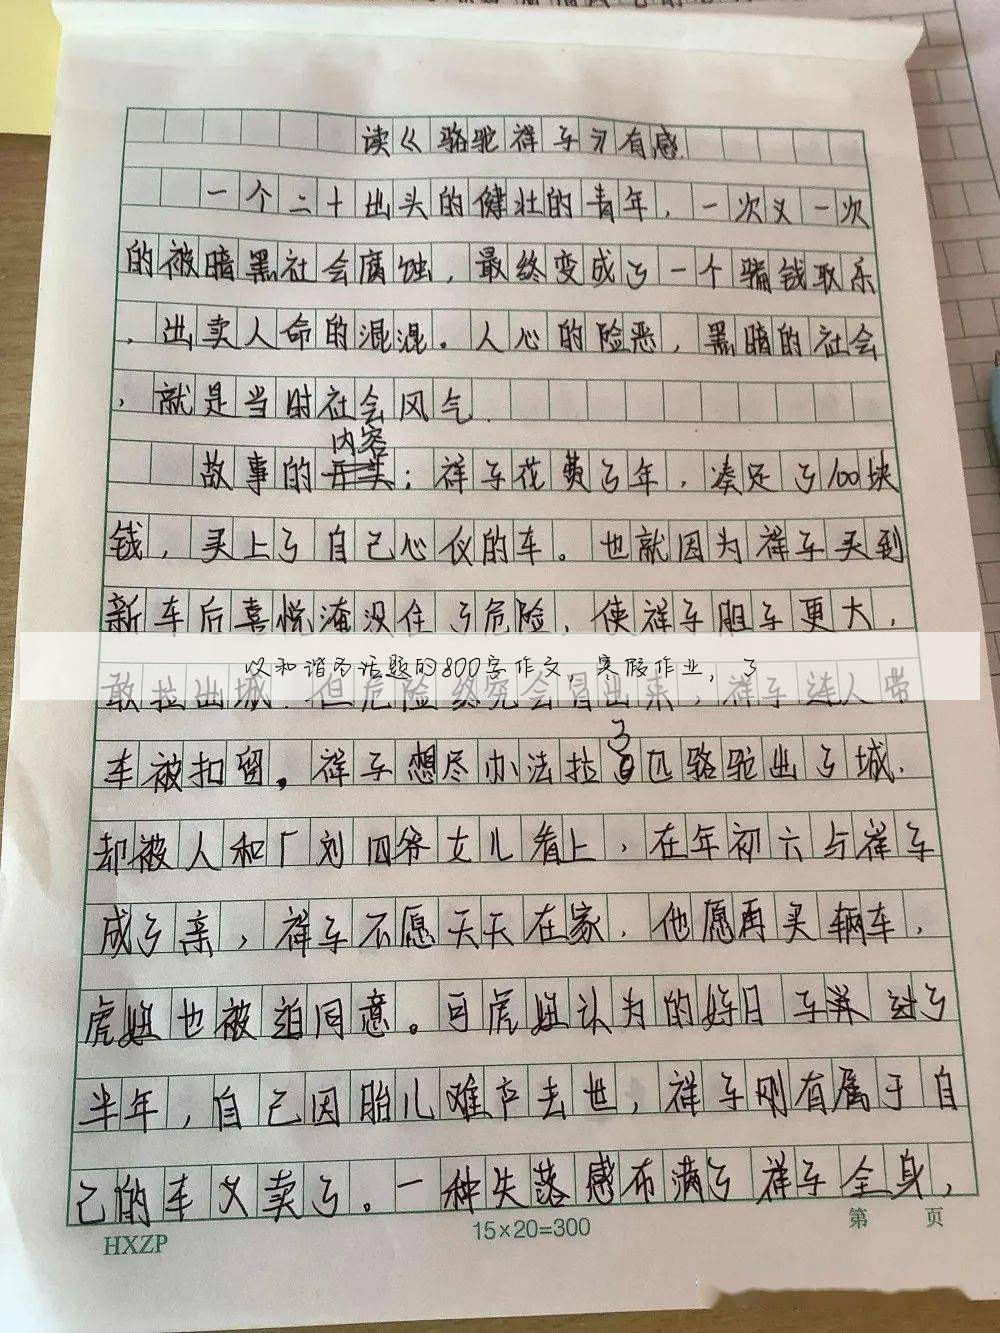 读《骆驼祥子》有感
一个二十出头的健壮的青年，一次又一次
的被暗黑社会腐蚀，最终变成了一个骗钱取乐
，出卖人命的混混。人心的险恶，黑暗的社会
，就是当时社会风气.
内容
故事的开头：祥子花费了年，凑足了100块
钱，买上了自己心仪的车。也就因为祥子买到
新车后喜悦淹没住了危险，使祥子胆子更大，
以和谐为话题的800字作文，寒假作业，了
敢拉出城.但危险终究会冒出来，祥子连人带
车被扣留。祥子想尽办法拉了匹骆驼出了城.
却被人和厂刘四爷女儿看上，在年初六与祥子
成了亲，祥子不愿天天在家.他愿再买辆车，
虎妞也被迫同意。可虎妞认为的好日子 过了
半年，自己因胎儿难产去世，祥子刚有属于自
己的车又卖了。一种失落感布满了祥子全身，
HXZP
15×20=300
第 页